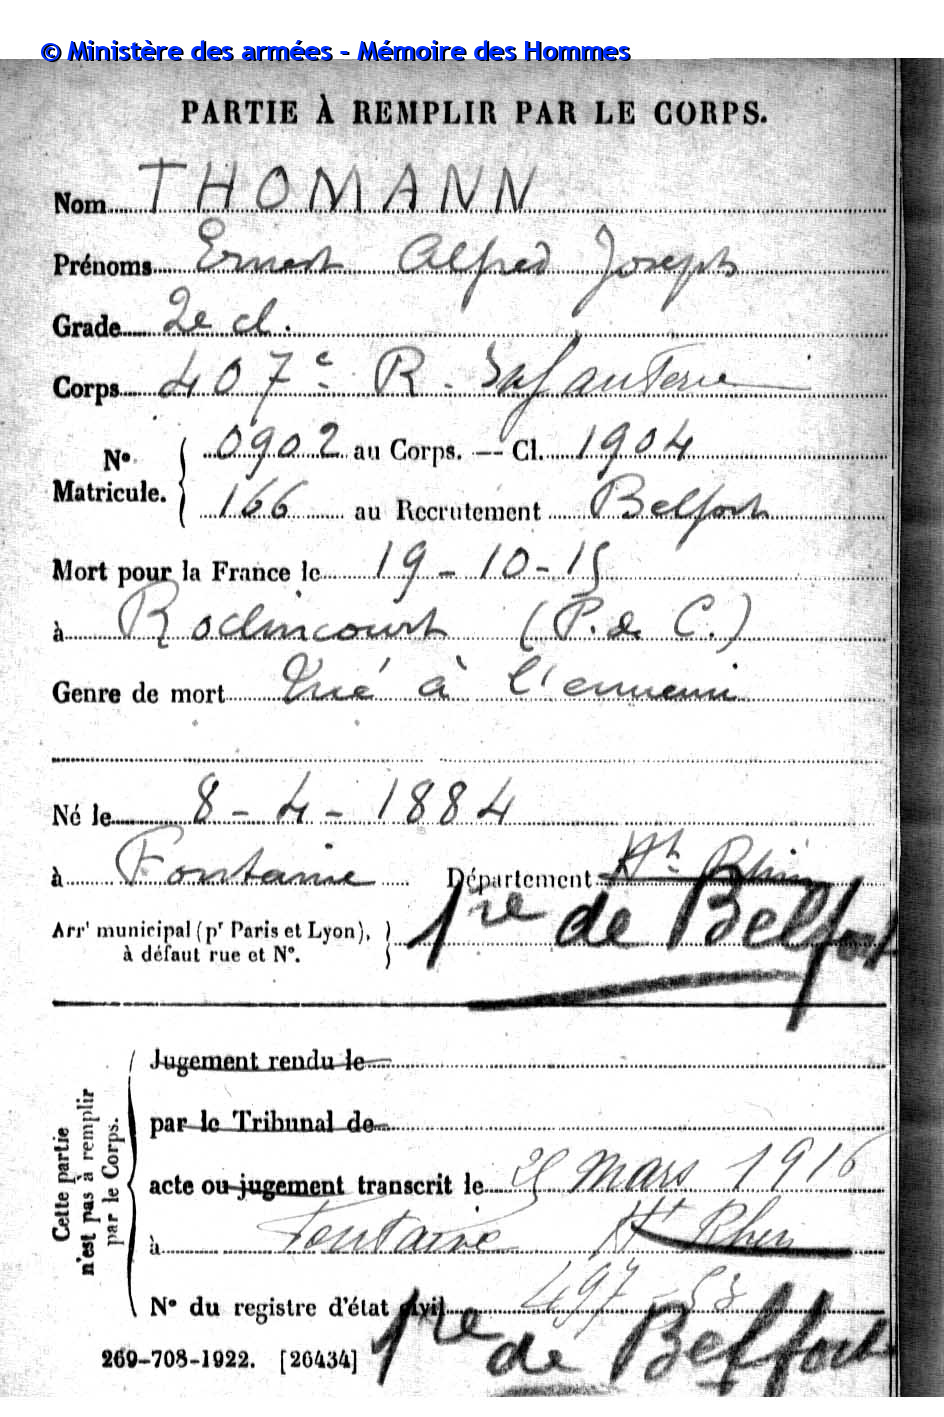 © Ministère des armées - Mémoire des Hommes
PARTIE À REMPLIR PAR LE CORPS.
Nom THOMANN
Prénoms Ernest Alfred Joseph
Grade 2e cl.
Corps 407e R. Infanterie
N° Matricule. 0902 au Corps. — Cl. 1904
166 au Recrutement Belfort
Mort pour la France le 19-10-15
à Roclincourt (P. de C.)
Genre de mort Tué à l'ennemi
Né le 8-4-1884
à Fontaine Département Ht Rhin
Arrt municipal (pr Paris et Lyon), à défaut rue et N°. Tre de Belfort
Cette partie n'est pas à remplir par le Corps.
Jugement rendu le
par le Tribunal de
acte ou jugement transcrit le 25 mars 1916
à Fontaine Ht Rhin
N° du registre d'état civil 497-53
269-708-1922. [26434] Tre de Belfort